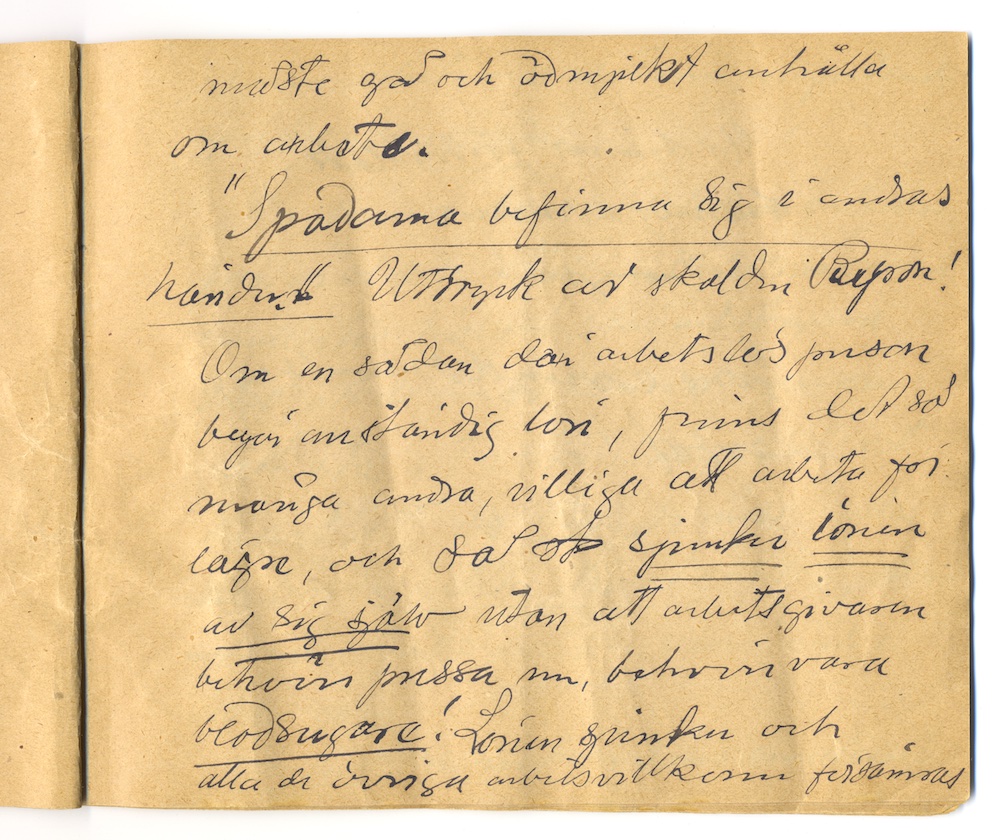 måste gå och ödmjukt anhålla
om arbete.
"Spadarna befinna sig i andras
händer." Uttryck av skalden
Om en sådan där arbetslös person
begär anständig lön, finns det så
många andra, villiga att arbeta för
lägre, och så sjunker lönen
av sig själv utan att arbetsgivaren
behöver pressa ner, behöver vara
blodsugare! Lönen sjunker och
alla de övriga arbetsvillkoren försämras